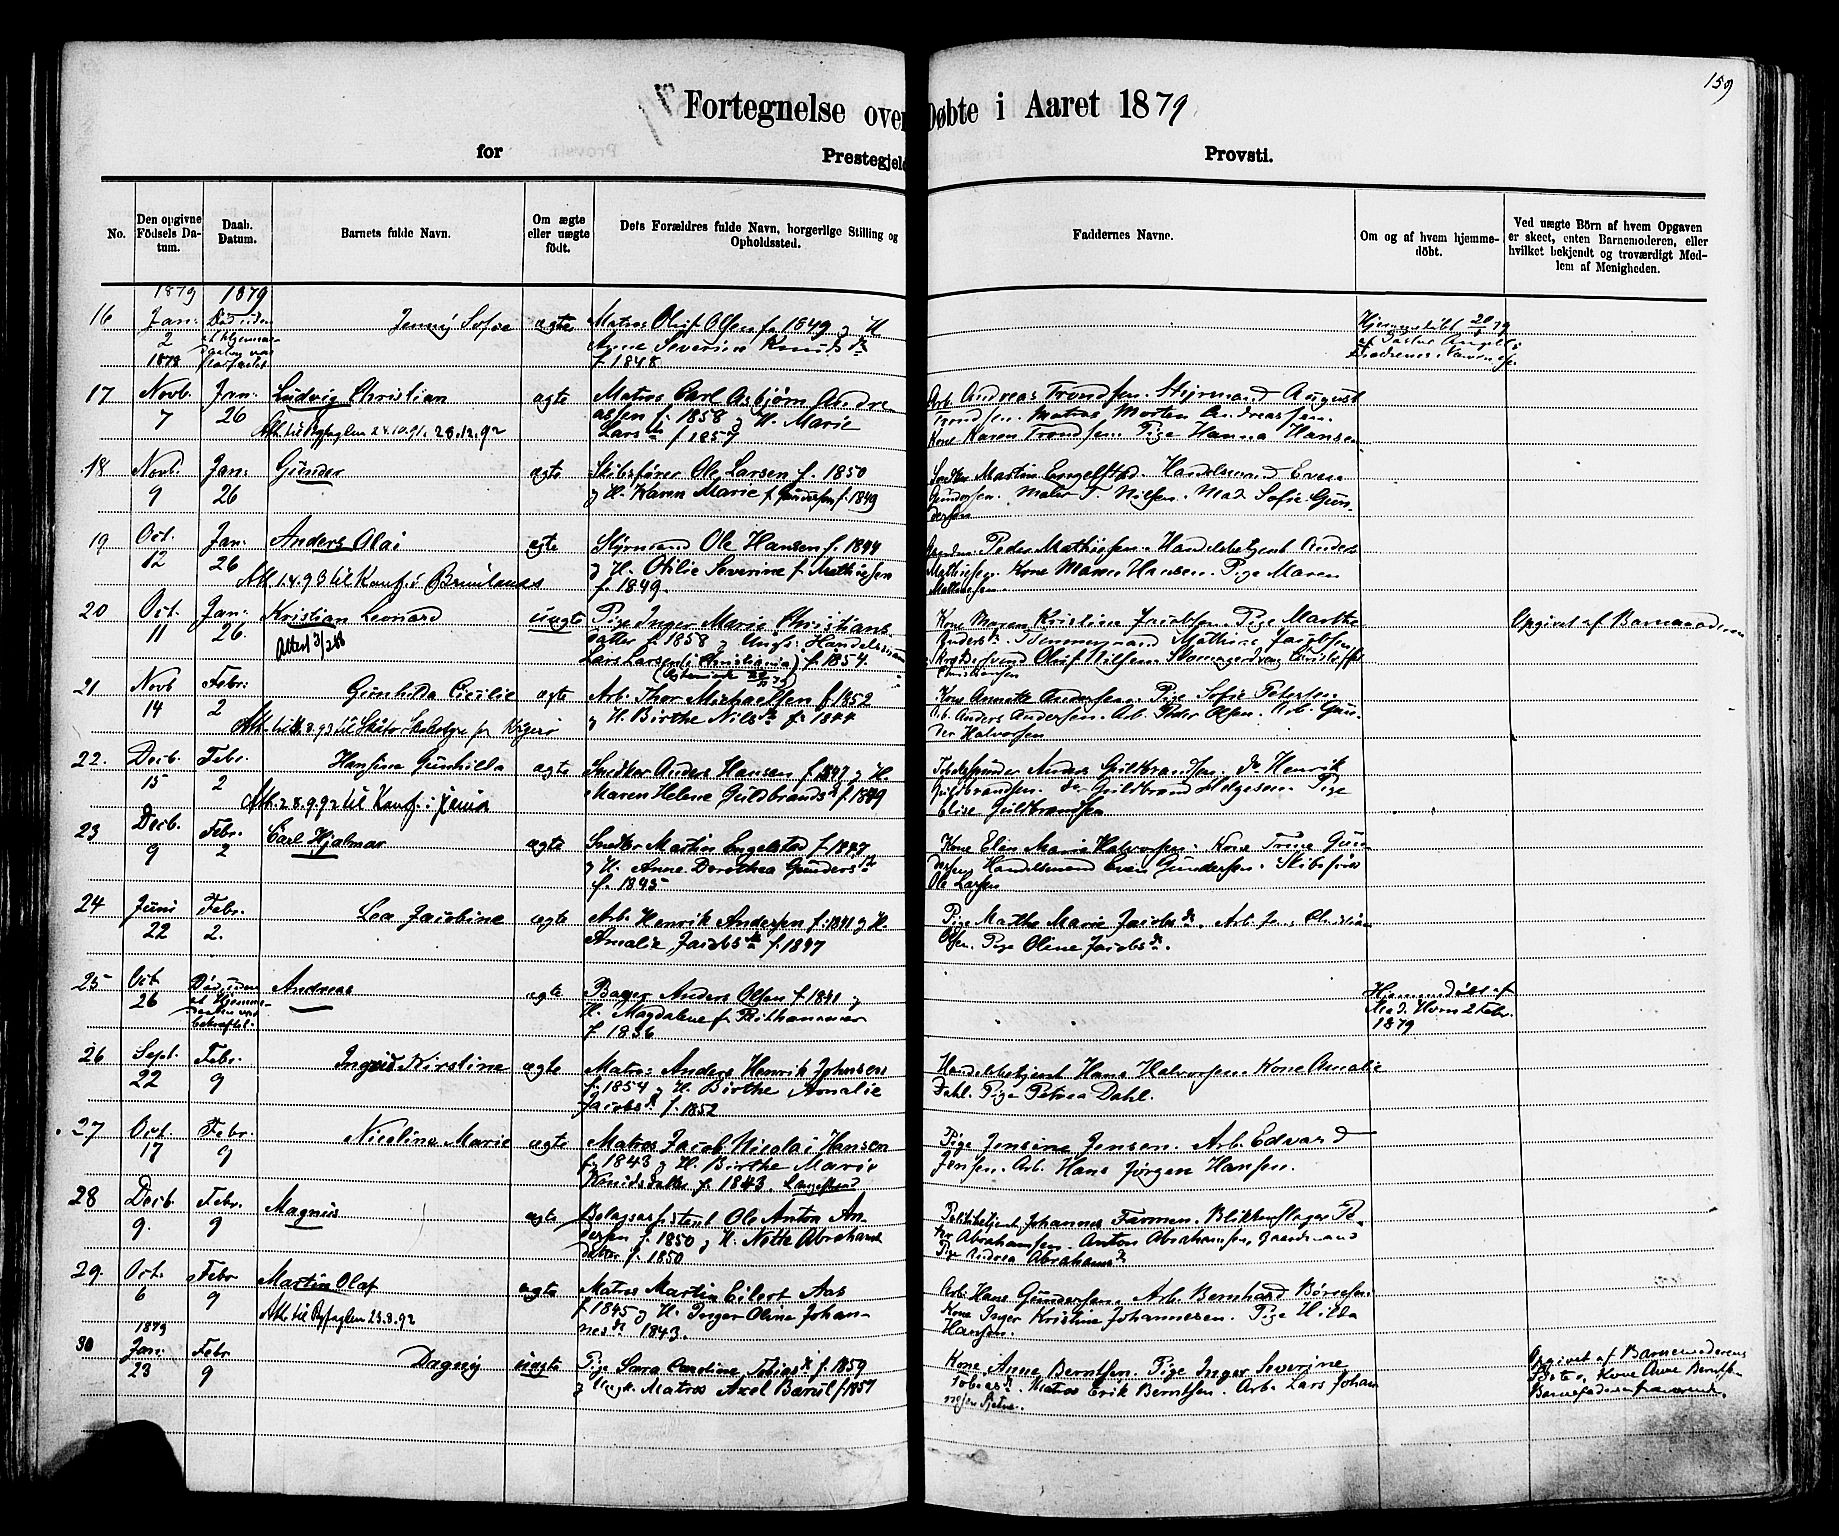 159
Fortegnelse over Døbte i Aaret 1879
for Prestegjeld Provsti.
No.
Den opgivne Födsels Datum.
Daab. Datum.
Barnets fulde Navn.
Om ægte eller uægte födt.
Dets Forældres fulde Navn, borgerlige Stilling og Opholdssted.
Faddernes Navne.
Om og af hvem hjemmedöbt.
Ved uægte Börn af hvem Opgaven er skeet, enten Barnemoderen, eller hvilket bekjendt og troværdigt Medlem af Menigheden.
1879 1879
16 Jan. 2 Jenny Sofie ægte Matros Oluf Olsen f. 1849 og H.
Anne Severine Knuds dr
f. 1848
1878
17 Novb. 7 Jan. 26 Ludvig Christian ægte Matros Carl Asbjørn Andre
assen f. 1858 og H. Marie
Lars dr f 1857
Att. til 24.10.91. 28.12.92
Arb. Andreas Trondsen. Styrmand August
Trondsen. Matros Morten Andreassen.
Kone Karen Trondsen. Pige Hanna Hansen
18 Novb. 9 Jan. 26 Gunder ægte Skibsfører Ole Larsen f. 1850
og H. Karen Marie f. Gundersen f. 1849
Snedker Martin Engelstad. Handelsmand Even
Gundersen. Nilsen. Mad. Sofie Gun-
dersen
19 Oct. 12 Jan. 26 Anders Olai ægte Styrmand Ole Hansen f. 1844
og H. Otilie Severine f. Mathiesen
f. 1849.
Att. 1.4.93 til Konf. i Brunlanes
Peder Mathiesen. Handelsbetjent Anders
Mathiesen. Kone Maren Hansen. Pige Maren
Mathiesen.
20 Oct. 11 Jan. 26. Kristian Leonard uægte Pige Inger Marie Christians
datter f. 1858 og Ungk. Handelsmand
Lars Larsen (i Christiania) f. 1854.
Kone Maren Kristine Jacobsen. Pige Marthe
Anders dr. Tømmermand Mathias Jacobsen
Oluf Nilsen. Skomagersvend
Christiansen
Opgivet af Barnemoderen
21 Novb 14 Febr. 2 Gunhilda Cecilie ægte Arb. Thor Michaelsen f. 1852
og H. Birthe Nils dr f. 1844
Kone Annette Andersen. Pige Sofie Petersen
Arb. Anders Andersen. Arb. Peder Olsen. Arb. Gun-
der Halvorsen
22. Decb. 15 Febr. 2 Hansine Gunhilda ægte Snedker Anders Hansen f. 1847 og H.
Maren Helene Guldbrands dr f. 1849
Att. 28.9.92 til Konf. i
Anders Guldbrandsen. do Henrik
Guldbrandsen. do Guldbrand Helgesen. Pige
Elise Guldbrandsen
23 Decb. 9 Febr. 2 Carl Hjalmar ægte Snedker Martin Engelstad f. 1847
og H. Anne Dorothea Gunders dr
f. 1845
Kone Elin Marie Halvorsen. Kone Trine Gun-
dersen Handelsmand Even Gundersen. Skibsfører
Ole Larsen
24 Juni 22 Febr. 2. Lea Jacobine ægte Arb. Henrik Andersen f. 1841 og H.
Amalie Jacobs dr f. 1847
Pige Marthe Marie Jacobs dr. Arb. Jens Christian
Olsen. Pige Oline Jacobs dr.
25 Oct 26 Andreas ægte Bager Anders Olsen f. 1841 og
H. Magdalene f.
f. 1836
Hjemmedöbt af
Mad. Horn 2 Febr.
1879
26 Sept. 22 Febr. 9 Ingrid Kirstine ægte Matros Anders Henrik Johnsen
f. 1854 og H. Birthe Amalie
Jacobs dr f. 1852
Handelsbetjent Hans Halvorsen. Kone Amalie
Dahl. Pige Petrea Dahl.
27 Oct. 17 Febr. 9 Nicoline Marie ægte Matros Jacob Nicolai Hansen
f. 1843 og H. Birthe Marie
Knudsdatter f. 1843. Langestrand
Pige Jensine Jensen. Arb. Edvard
Jensen. Arb. Hans Jørgen Hansen.
28 Decb 9. Febr. 9 Magnus ægte Ole Anton An-
dersen f. 1850 og H. Nette Abrahams
datter f. 1850
Politibetjent Johannes Farmen. Blikkenslager Pe-
ter Abrahamsen. Anton Abrahamsen,
Pige Andrea Abrahams dr
29. Oct. 6 Febr 9 Martin Olaf ægte Matros Martin Eilert Aas
f. 1845 og H. Inger Oline Johan-
nes dr 1843.
Att. til 23.9.92
Arb. Hans Gundersen. Arb. Bernhard Børresen.
Kone Inger Kristine Johannesen. Pige Hilda
Hansen.
1879
30 Jan. 23 Febr 9 Dagny uægte Pige Sara Caroline Tobias dr f. 1859
og Ungk. Matros Axel f. 1857
Kone Anne Berntsen. Pige Inger Severine
Tobias dr. Matros Erik Berntsen. Arb. Lars Johan
nesen
Opgivet af Barnemoderens
Kone Anne Bernts-